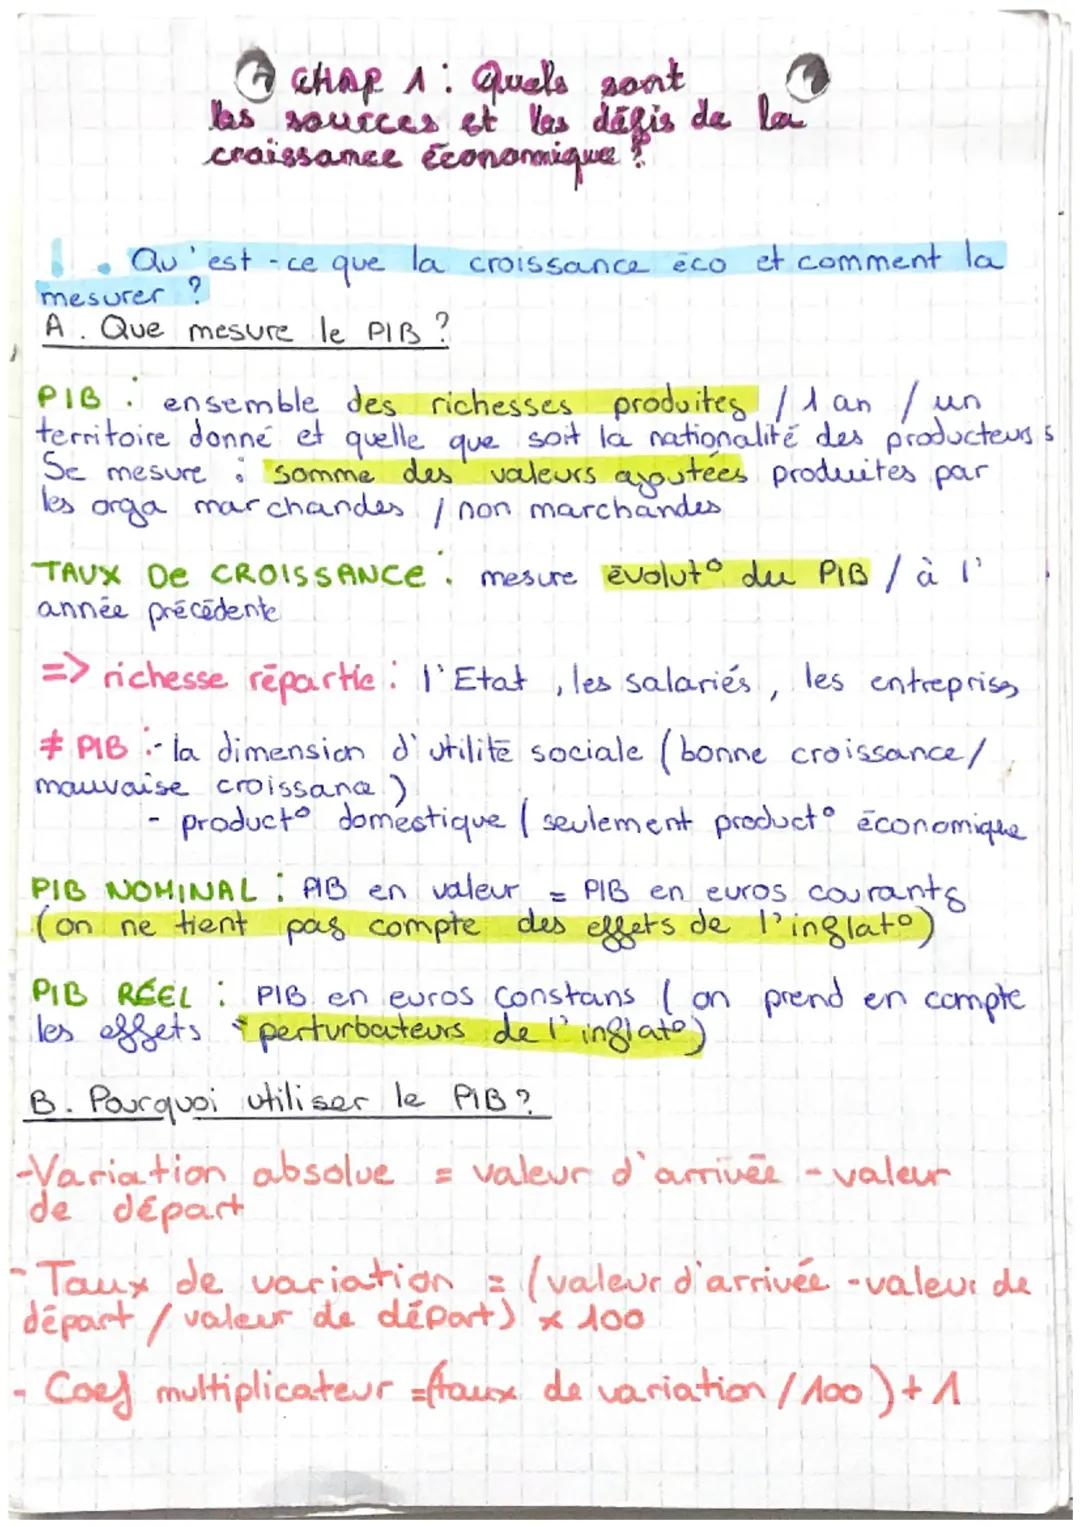 CHAP 1 : Quels sont
les sources et les défis de la
croissance économique ?
1. Qu'est-ce que la croissance éco et comment la
mesurer ?
A. Que mesure le PIB ?
PIB : ensemble des richesses produites / 1 an / un
territoire donné et quelle que soit la nationalité des producteurs
Se mesure : somme des valeurs ajoutées produites par
les orga marchandes / non marchandes
TAUX DE CROISSANCE : mesure évolut° du PIB / à l'
année précédente
=> richesse répartie : l'Etat, les salariés, les entreprises
≠ PIB :- la dimension d'utilité sociale (bonne croissance/
mauvaise croissance)
- product° domestique ( seulement product° économique
PIB NOMINAL : PIB en valeur = PIB en euros courants
(on ne tient pas compte des effets de l'inflat°)
PIB RÉEL : PIB en euros constans ( on prend en compte
les effets perturbateurs de l'inflat°)
B. Pourquoi utiliser le PIB ?
-Variation absolue = valeur d'arrivée - valeur
de départ
- Taux de variation = (valeur d'arrivée - valeur de
départ / valeur de départ) x 100
- Coef multiplicateur =(taux de variation / 100) + 1